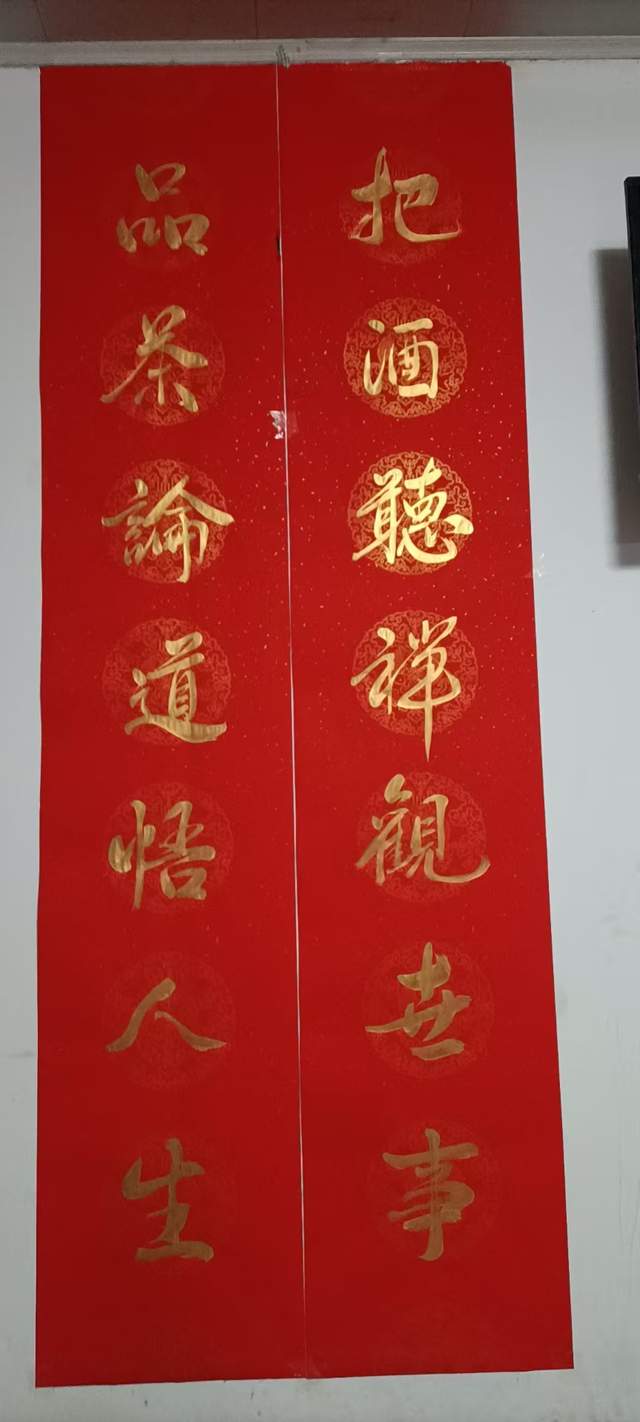 把酒聽禪觀世事
品茶論道悟人生